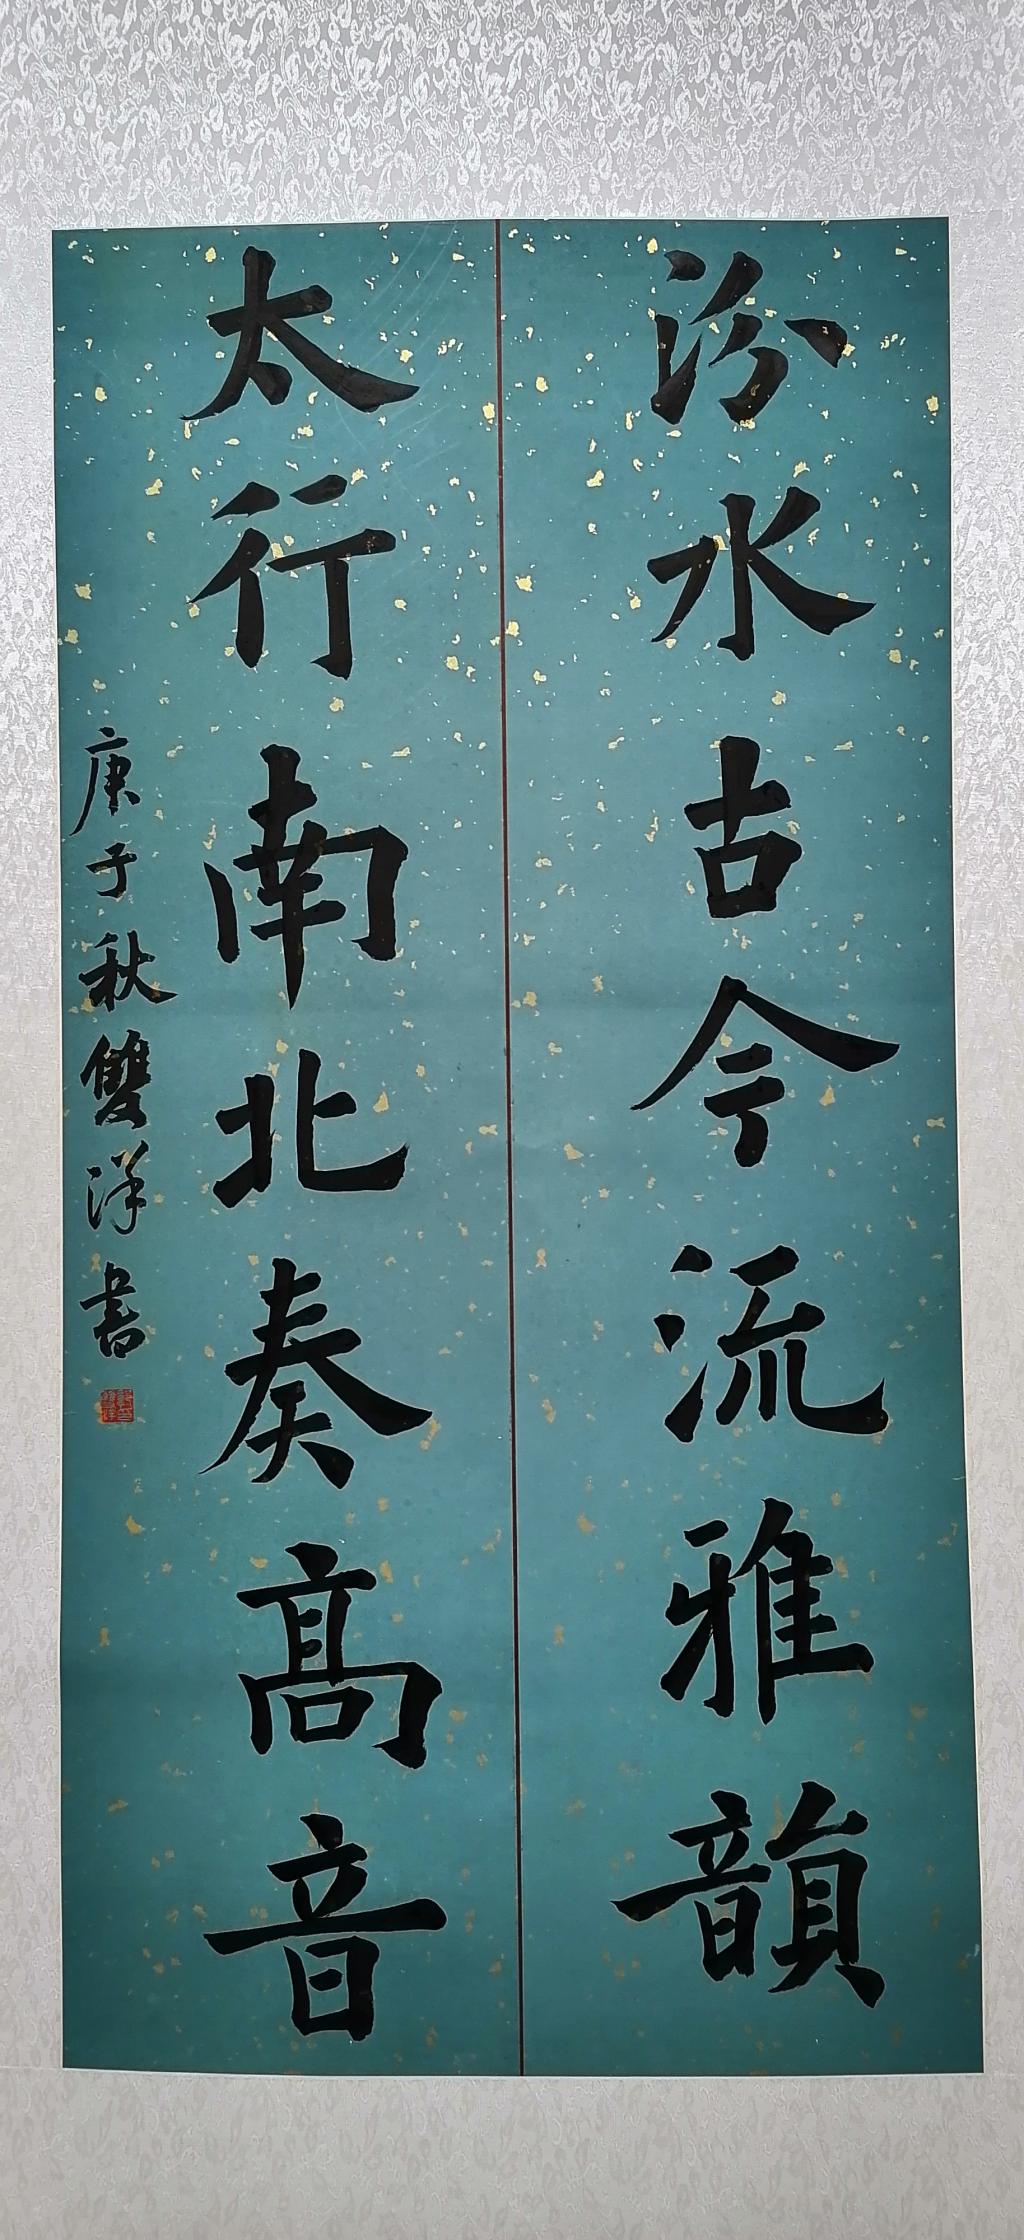 汾水古今流雅韻
太行南北奏高音
庚子秋雙洋書